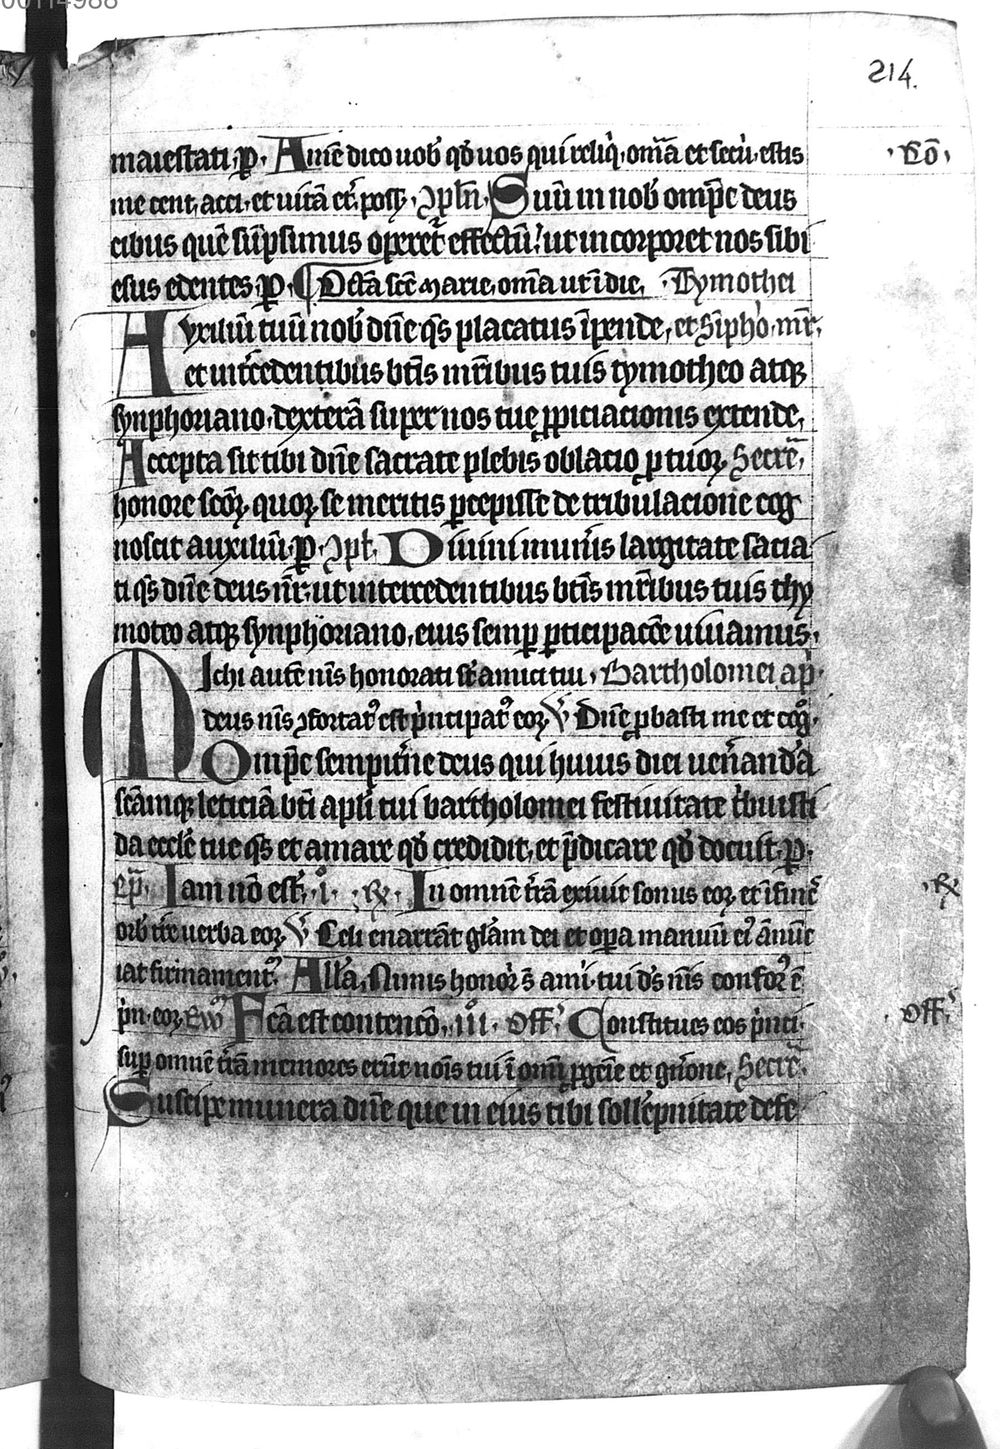 00114988
214.
maiestati. p̄. Am̄e dico uob̓ qd̓ uos qui reliq̓. om̄a et secū. estis
·Cō·
me cent. acci. et uitā et̓. poss̄. ꝯpl̄n. Suū in nob̓ omp̄e deus
cibus quē sūpsimus operet᷑ effectū. ut incorporet nos sibi
esus edentes. p̄. Octā scē marie. om̄a ut ī die. Thymothei
Auxiliū tuū nob̓ dn̄e qs̄ placatus īpende, et Sīpho. mr̄.
et int̓cedentibus bt̄is mr̄ibus tuis tymotheo atqꝫ
synphoriano. dexterā super nos tuę ꝓpiciacionis extende.
Accepta sit tibi dn̄e sacrate plebis oblacio ꝓ tuoꝝ Secre᷑.
honore scōꝝ. quoꝝ se meritis ꝑcepisse de tribulacione cog
noscit auxiliū. p̄. ꝯpl̓. Diuini mun̓is largitate sacia
ti qs̄ dn̄e deus nr̄. ut intercedentibus bt̄is mr̄ibus tuis thy
moteo atqꝫ synphoriano. eius semꝑ ꝑticipacōe uiuamus.
Michi autē nīs honorati st̄ amici tui. Bartholomei ap̄.
deus nīs ꝯfortat᷒ est p̓ncipat᷒ eoꝝ. V̓ Dn̄e ꝓbasti me et cog̓.
Omp̄e sempit̓ne deus qui huius diei uen̓anda
scāmqꝫ leticiā bt̄i apl̓i tui bartholomei festiuitate t̓buisti
da eccle̓ tue qs̄ et amare qd̓ credidit. et p̄dicare qd̓ docuit. p̄.
Ep̄. Iam nō est̓. i̊. ℟. In omnē t̓rā exiuit sonus eoꝝ. et ī fines̓
·℟
orb̓ t̓re uerba eoꝝ. V̓ Celi enarrāt gl̓am dei et oꝑa manuū ei᷒ ānūc
iat firmament̓. All̓a. Nimis honor̓ s̄ ami̓. tui ds̄ nīs confor᷒ ē
p̓n. eoꝝ. Ew̄ Fcā est contencō. iii̊. Off̓. Constitues eos p̓nci.
. Off̓.
suꝑ omnē t̓rā memores erūt noīs tui ī omī ꝓgēie et gn̓one. Secre᷑.
Suscipe munera dn̄e que in eius tibi soll̓epnitate defe